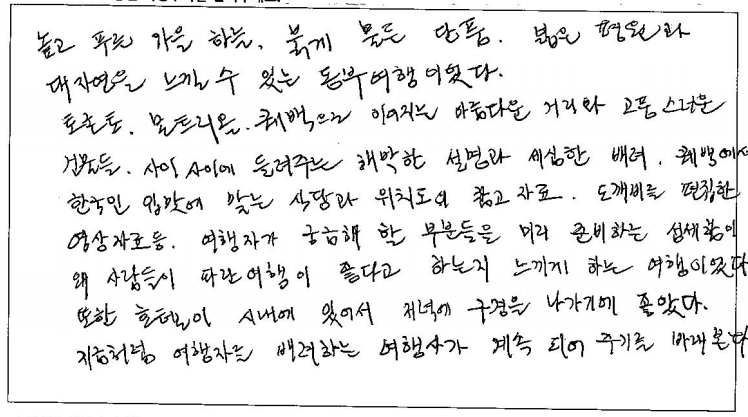 높고 푸른 가을 하늘, 붉게 물든 단풍, 넓은 평원과
대자연을 느끼실 수 있는 동부여행이었다.
토론토, 몬트리올, 퀘백으로 이어지는 아름다운 거리와 고풍스러운
건물들, 사이사이에 들려주는 해박한 설명과 세심한 배려, 퀘백에서
한국인 입맛에 맞는 식당과 위치도와 참고자료, 도깨비를 편집한
영상자료등, 여행자가 궁금해 할 부분들을 미리 준비하는 섬세함이
왜 사람들이 파란여행이 좋다고 하는지 느끼게 하는 여행이었다
또한 호텔이 시내에 있어서 저녁에 구경을 나가기에 좋았다.
지금처럼 여행자를 배려하는 여행사가 계속 되어 주기를 바래본다